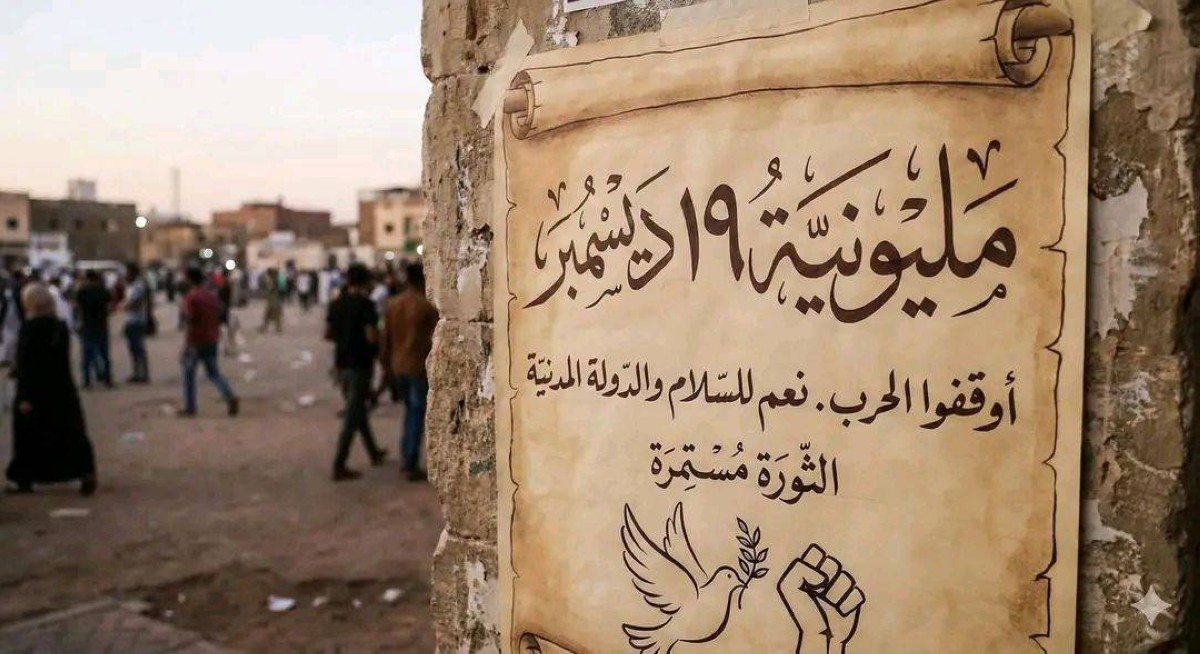 مَليُونيَّة ١٩ ديسْمبر
أوقفوا الحرب. نعم للسّلام والدّولة المدنيّة
الثّورَة مُسْتمِرَة